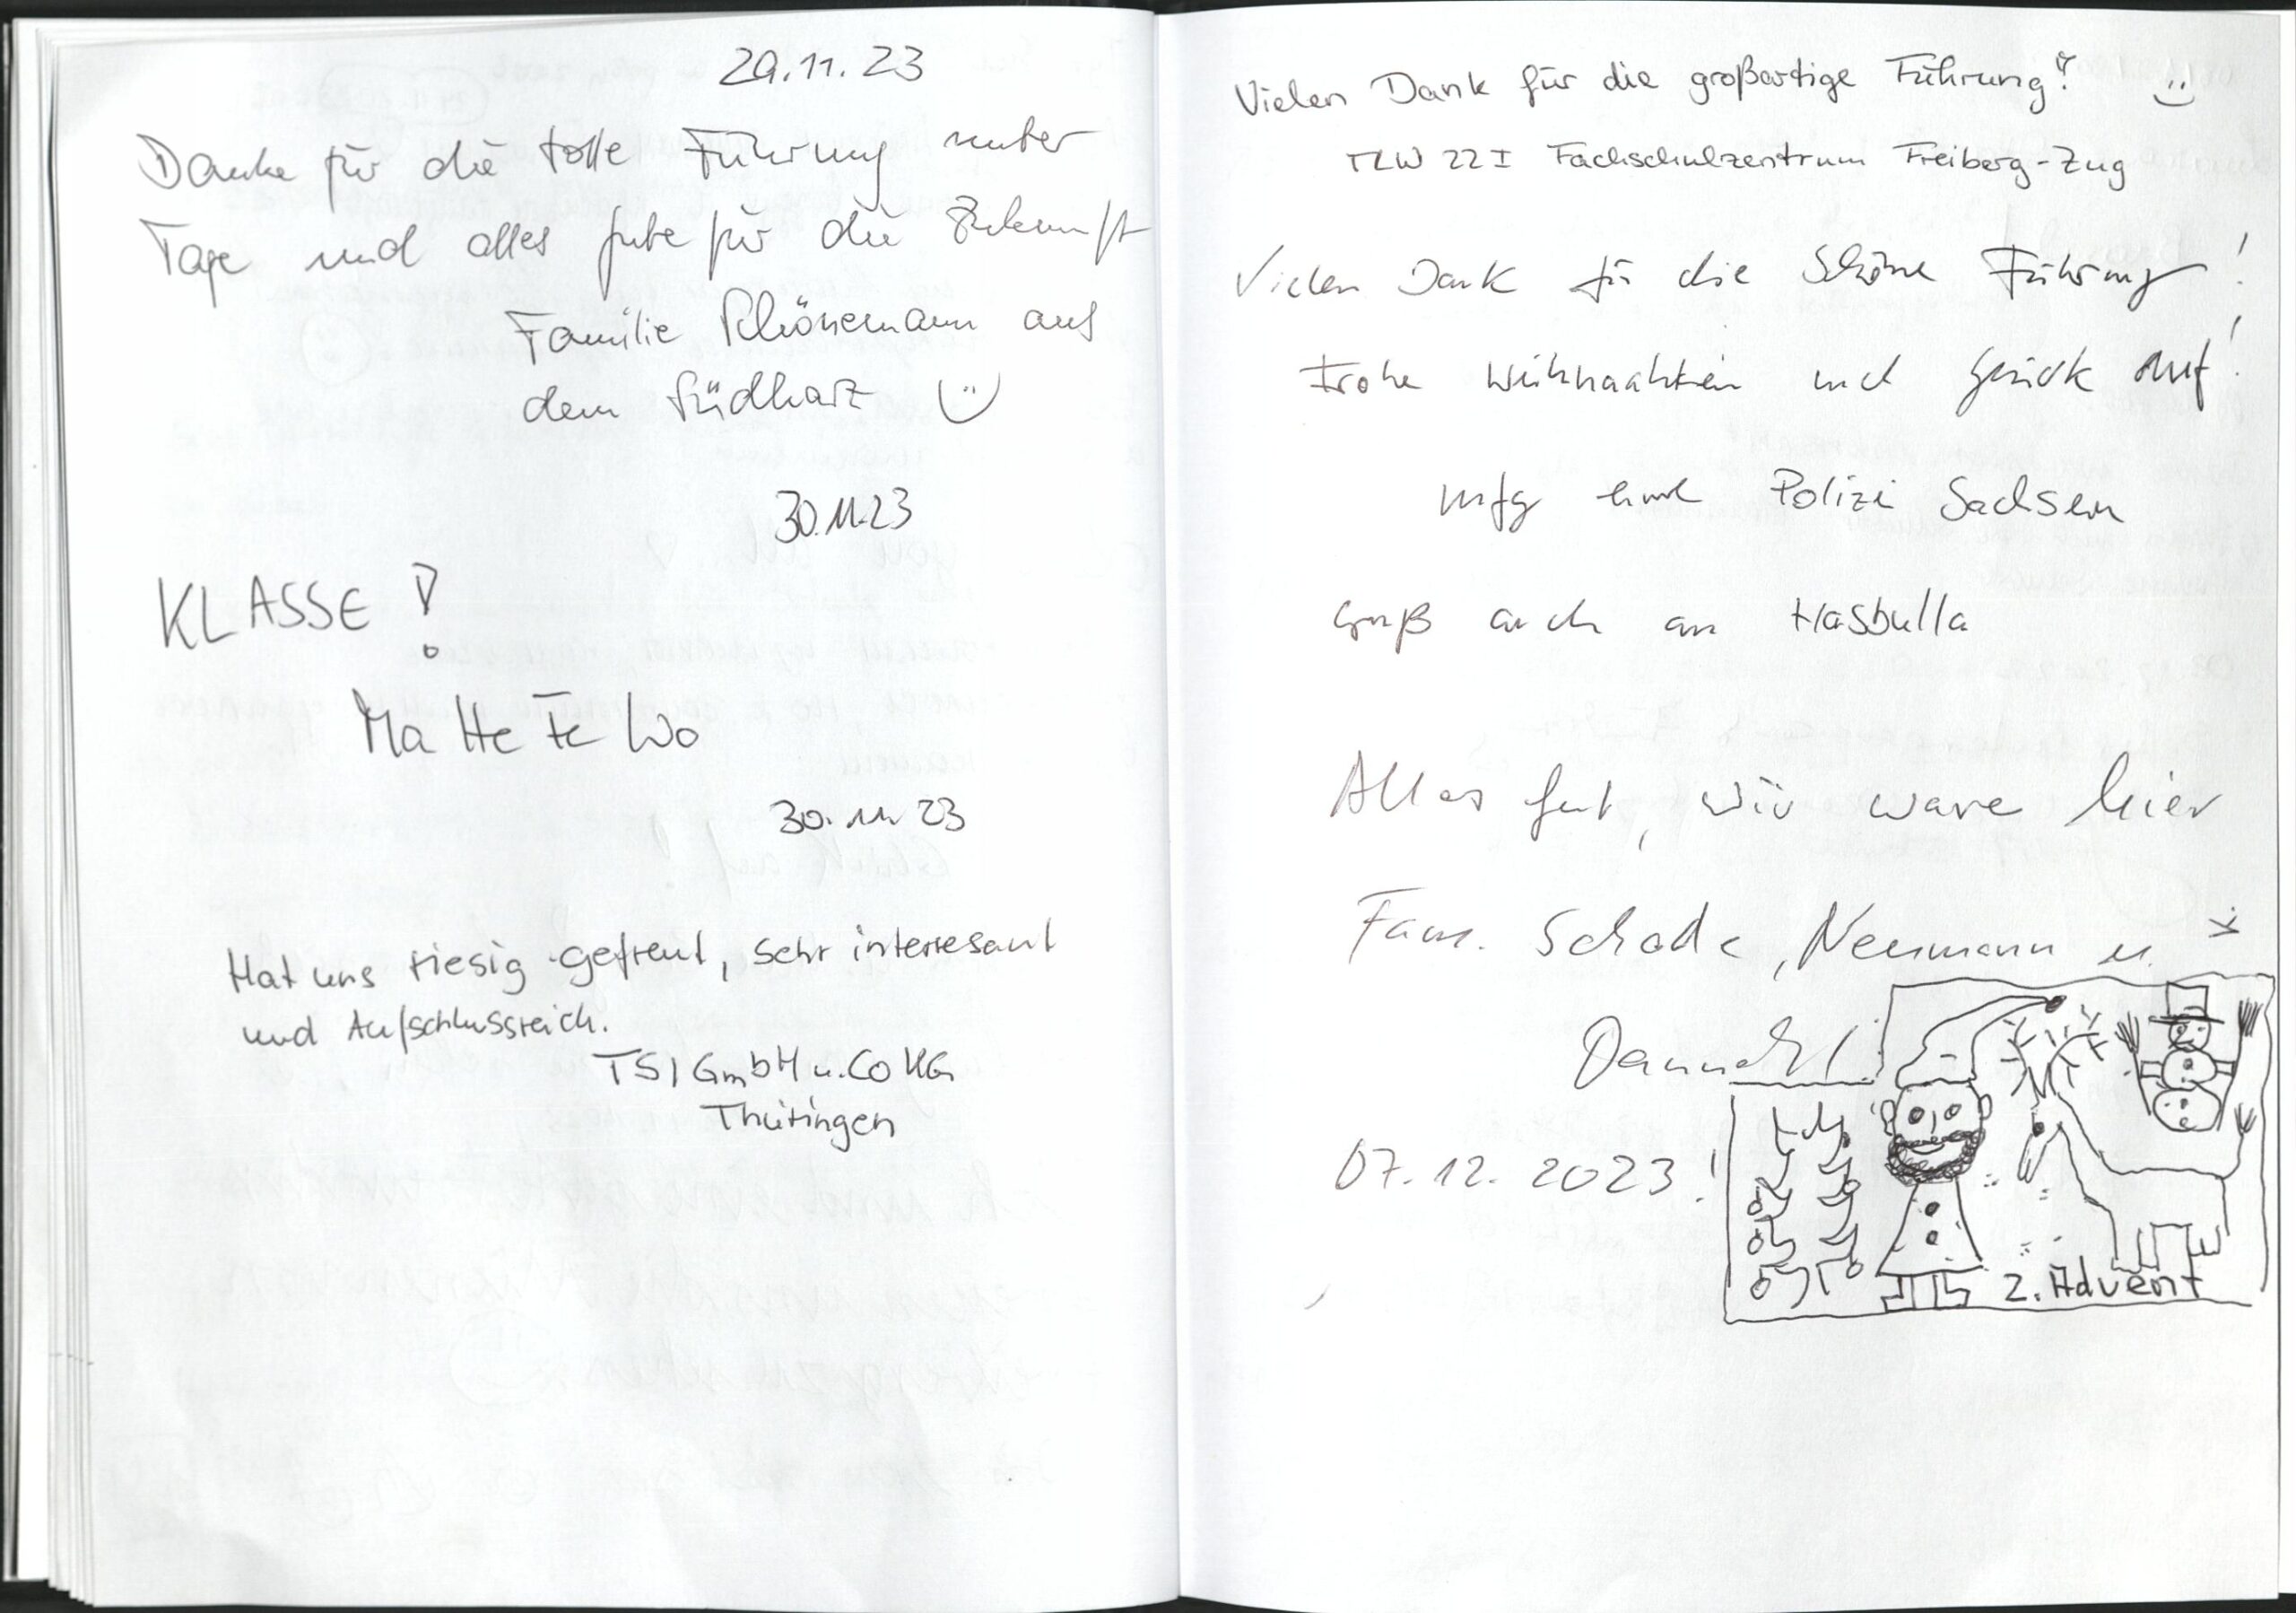 29.11.23
Danke für die tolle Führung unter
Tage und alles gute für die Zukunft
Familie Schönemann aus
dem Südharz
30.11.23
KLASSE !
Ma He Te Wo
30.11.23
Hat uns riesig gefreut, sehr interresant
und Aufschlussreich.
TSI GmbH u. Co KG
Thüringen
Vielen Dank für die großartige Führung!
TLW 22 I Fachschulzentrum Freiberg-Zug
Vielen Dank für die schöne Führung!
Frohe Weihnachten und Glück auf!
mfg Polizei Sachsen
Gruß auch an Hasbulla
Alles gut, wir ware hier
Fam. Schade, Neumann u.
07.12.2023!
2. Advent